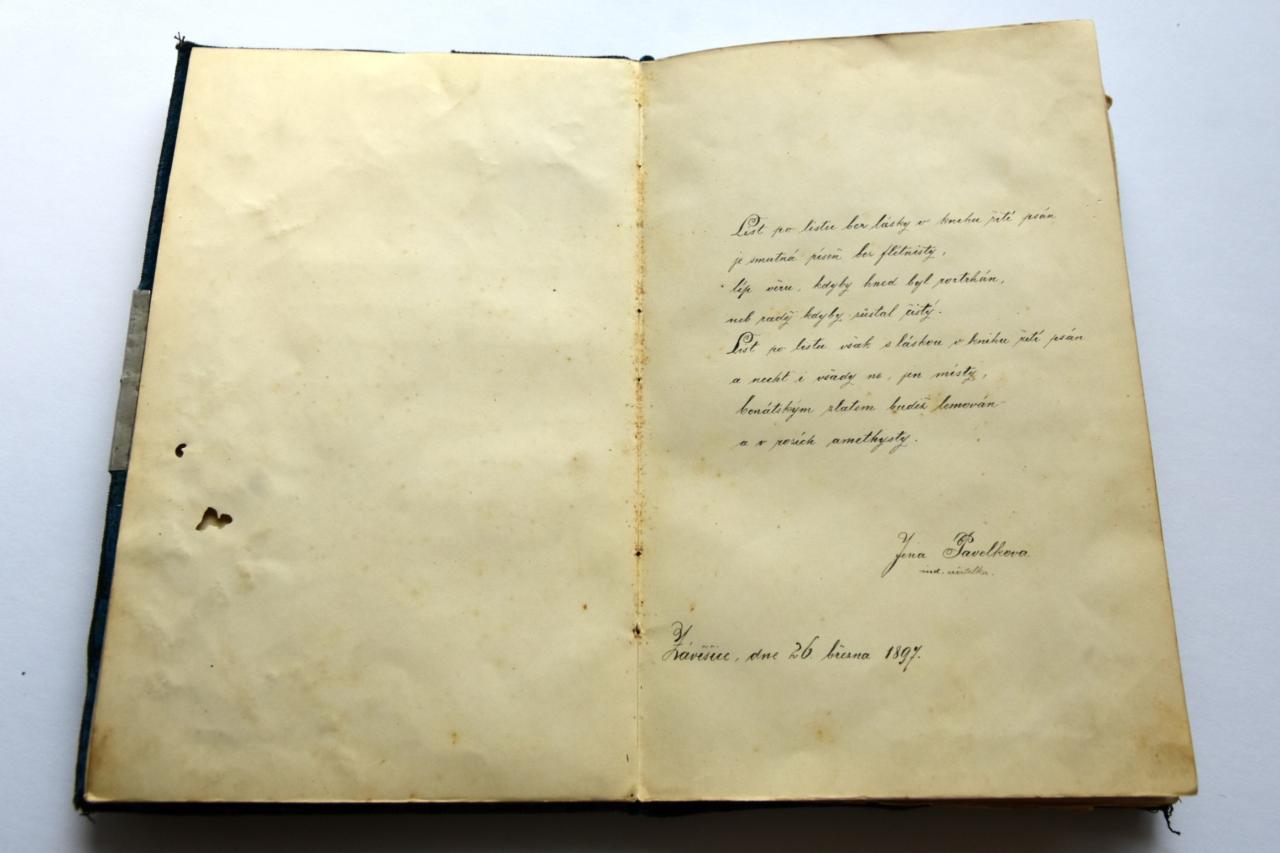 List po listu bez lásky v knihu žití psán
je smutná píseň bez flétnisty,
líp věru, kdyby hned byl roztrhán,
neb raděj kdyby zůstal čistý.
List po listu však s láskou v knihu žití psán
a nechť i všady ne, jen místy,
benátským zlatem budiž lemován
a v rozích amethysty.
Jena Pavelkova
ind. učitelka.
Závišice, dne 26 března 1897.